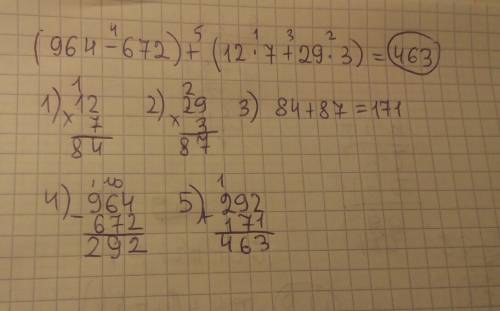 (964 - 672) + (12 · 7 + 29 · 3) = 463
4 5 1 3 2
1) 12 × 7 = 84
2) 29 × 3 = 87
3) 84 + 87 = 171
4) 964 - 672 = 292
5) 292 + 171 = 463